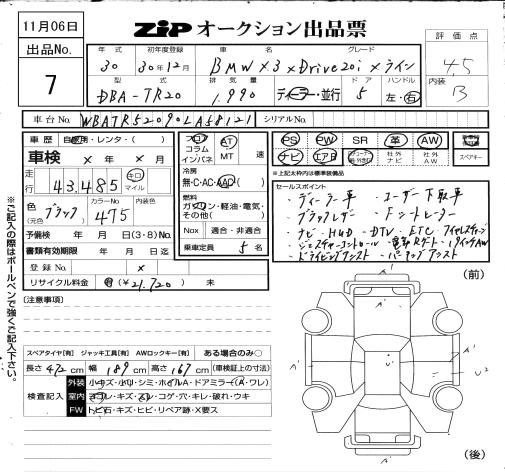 11月06日
ZIP オークション出品票
出品No.
7
評価点
4.5
内装
B
年式 初年度登録 車名 グレード
30 30年12月 BMW X3 xDrive20i xライン
型式 排気量 ドア ハンドル
DBA-TR20 1,990 ディーラー・並行 5 左・右
車台No. WBATR52090LA58121 シリアルNo.
車歴 自家用・レンタ・( )
車検 x年x月x日
走行 43,485 キロ マイル
色 ブラック (元色) カラーNo 475 内装色
予備検 年 月 日(3・8)No.
書類有効期限 年 月 日迄
登録No. x
リサイクル料金 (¥21,720)
フロア コラム インパネ AT MT 速
冷房 無・C・AC・AAC( )
燃料 ガソリン・軽油・電気 その他( )
Nox 適合・非適合
乗車定員 5 名
PS PW SR 革 AW
ナビ エアB 社外ナビ 社外AW
スペアキー
※上記太枠内は標準装備品
セールスポイント
・ディーラー車 ・ユーザー下取車
・ブラックレザー ・Fシートヒーター
・ナビ・HUD・DTV・ETC・ワイヤレスチャージ
・ジェスチャーコントロール・電動Rゲート・19インチAW
・ドライビングアシスト・パーキングアシスト
(注意事項)
スペアタイヤ[有] ジャッキ工具[有] AWロックキー[有] ある場合のみ○
長さ 472 cm 幅 189 cm 高さ 167 cm (車検証上の寸法)
検査記入
外装 小キズ・小U・シミ・ホイルA・ドアミラー(A・ワレ)
室内 ヨゴレ・キズ・スレ・コゲ・穴・キレ・破れ・ウキ
FW トビ石・キズ・ヒビ・リペア跡・X要ス
(前)
A'
A'
A'
A'
U2
A'
(後)
※ご記入の際はボールペンで強くご記入下さい。